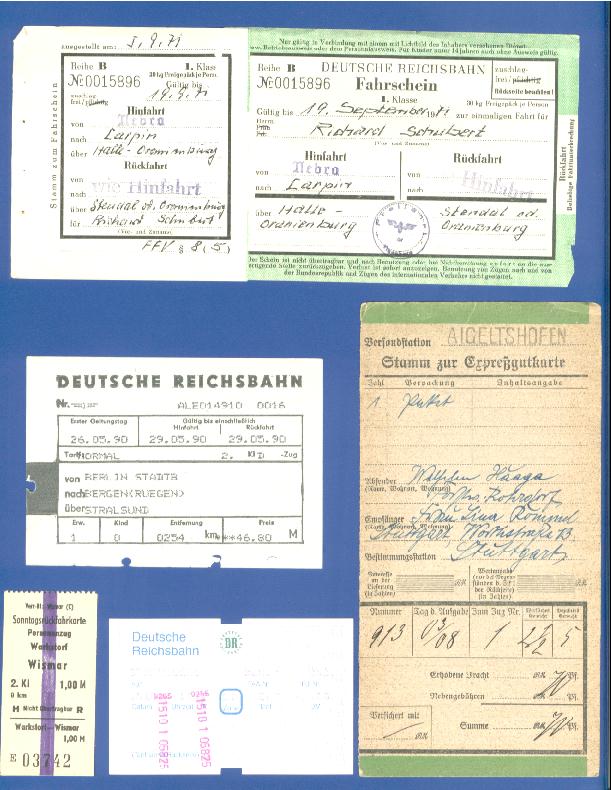 ausgestellt am: 1.9.71
Stamm zum Fahrschein
Reihe B 1. Klasse
№0015896 30 kg Freigepäck je Pers.
Gültig bis
19.9.71
zuschlag-
frei / pflichtig
Hinfahrt
von Nebra
nach Carpin
über Halle-Oranienburg
Rückfahrt
von
nach wie Hinfahrt
über Stendal od. Oranienburg
für Richard Schubert
(Vor- und Zuname)
FFV § 8,(5)
Nur gültig in Verbindung mit einem mit Lichtbild des Inhabers versehenen Dienst-,
oder dem Personalausweis. Für Kinder unter 14 Jahren auch ohne Ausweis gültig.
Reihe B DEUTSCHE REICHSBAHN
№0015896 Fahrschein
1. Klasse
zuschlag-
frei / pflichtig
Rückseite beachten!
30 kg Freigepäck je Person
Gültig bis 19. September 1971 zu einmaligen Fahrt für
Herrn
Richard Schubert
(Vor- und Zuname)
Hinfahrt
von Nebra
nach Carpin
über Halle-
Oranienburg
Rückfahrt
von
nach wie Hinfahrt
Stendal od.
Oranienburg
Rückfahrt
Der Schein ist nicht übertragbar und nach Benutzung oder bei Nichtbenutzung sofort an die
stelle zurückzugeben. Verlust ist sofort anzuzeigen. Benutzung von Zügen nach und von
der Bundesrepublik und Zügen des internationalen Verkehrs nicht gestattet.
DEUTSCHE REICHSBAHN
Nr. ALE014910 0016
Erster Geltungstag Gültig bis einschließlich
Hinfahrt Rückfahrt
26.05.90 29.05.90 29.05.90
Tarif NORMAL 2. Kl D -Zug
von BERLIN STADTB
nach BERGEN(RUEGEN)
über STRALSUND
Erw. Kind Entfernung Preis
1 0 0254 km **46.80 M
Versandstation AIGELTSHOFEN
Stamm zur Expreßgutkarte
Zahl Verpackung Inhaltsangabe
1 Paket
Absender Wilhelm Haaga
(Name, Wohnort, Wohnung)
Rohrdorf
Empfänger Frau Lina Rommel
(Name, Wohnort, Wohnung)
Stuttgart
Bestimmungsstation Stuttgart
Interesse
an der
Lieferung
(in Zahlen) RM
Wertangabe
RM
Nummer Tag d. Aufgabe Zum Zug Nr. Wirkliches Gewicht
913 03/08 1 2½ 5
Erhobene Fracht RM 70 Pf.
Nebengebühren RM Pf.
Versichert mit
RM
Summe RM 70 Pf.
Sonntagsrückfahrkarte
Personenzug
Warkstorf
Wismar
2. Kl 1,00 M
9 km
H Nicht übertragbar R
Warkstorf-Wismar
1,00 M
E 03742
Deutsche
Reichsbahn
DR